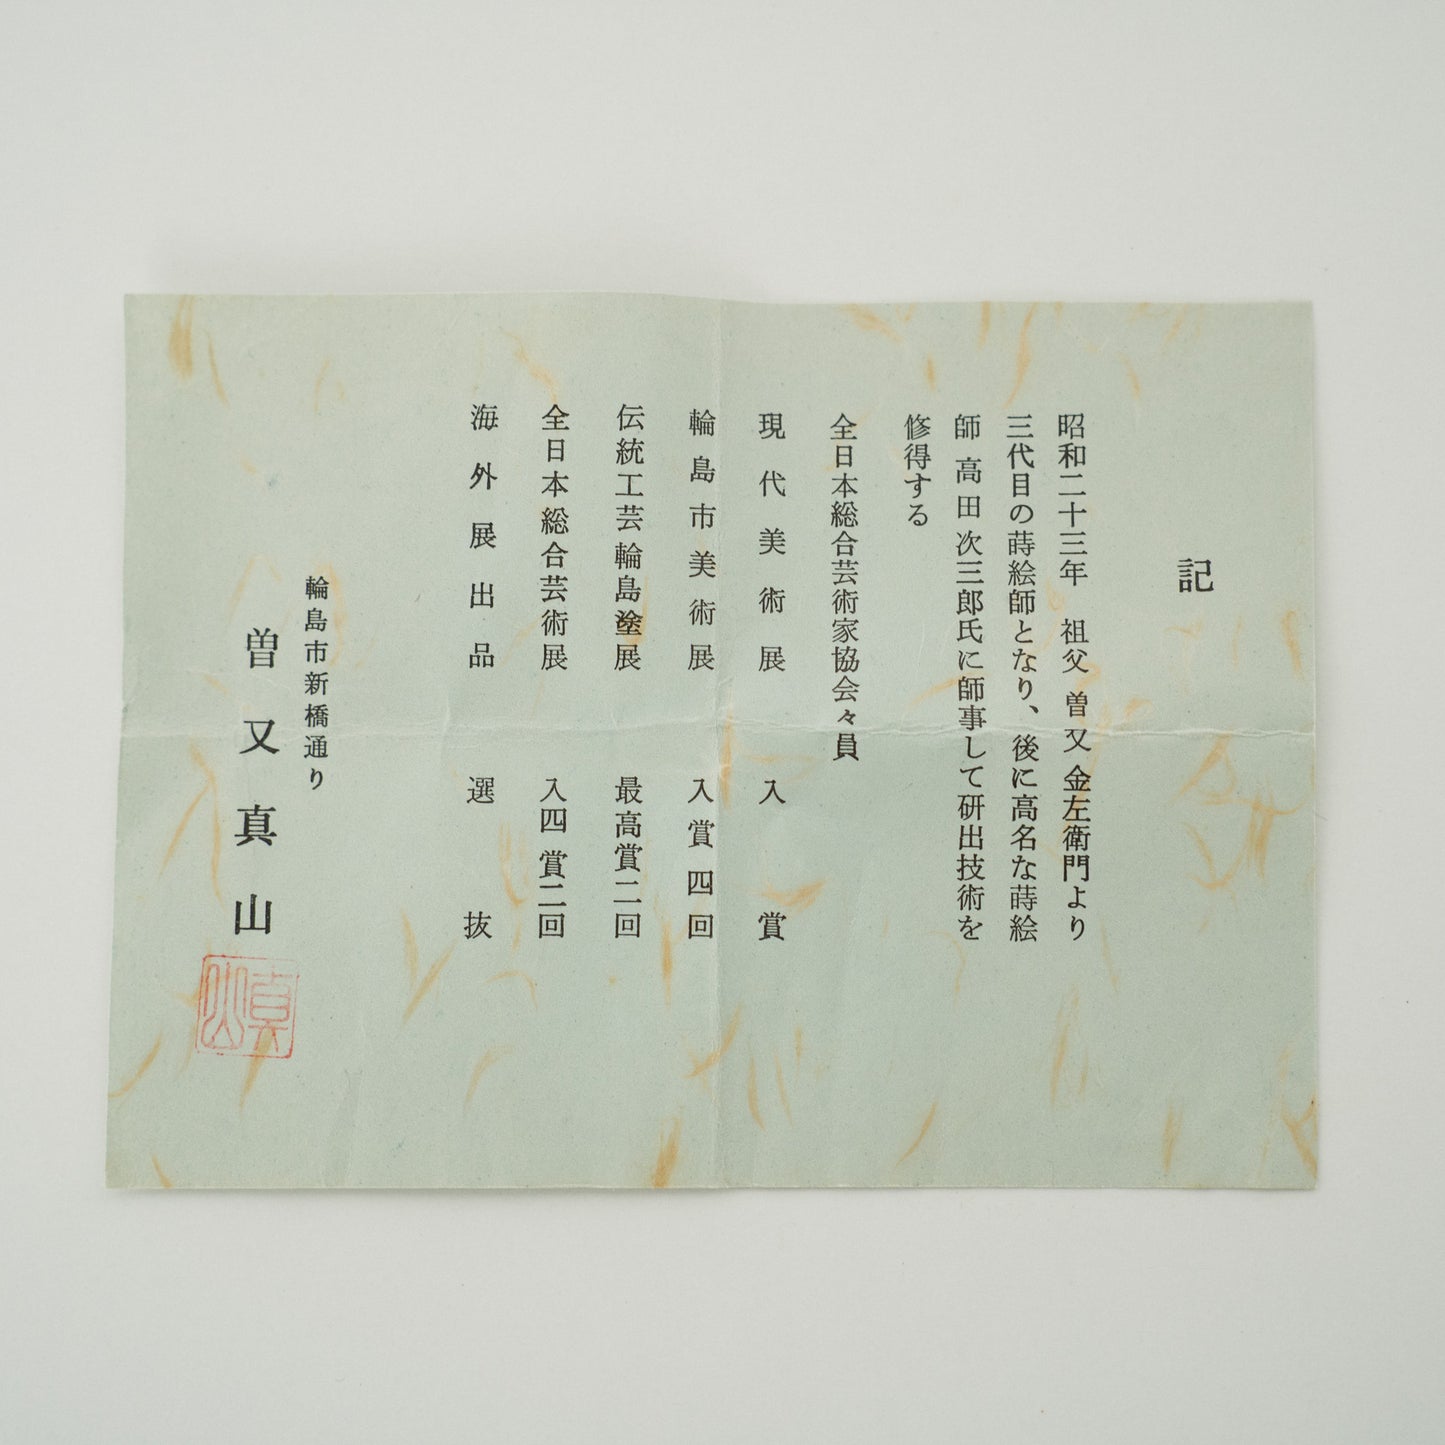 記
昭和二十三年　祖父 曽又 金左衛門より
三代目の蒔絵師となり、後に高名な蒔絵
師 高田 次三郎氏に師事して研出技術を
修得する
全日本総合芸術家協会々員
現代美術展　入賞
輪島市美術展　入賞四回
伝統工芸輪島塗展　最高賞二回
全日本総合芸術展　入四賞二回
海外展出品　選抜
輪島市新橋通り
曽又真山
真山